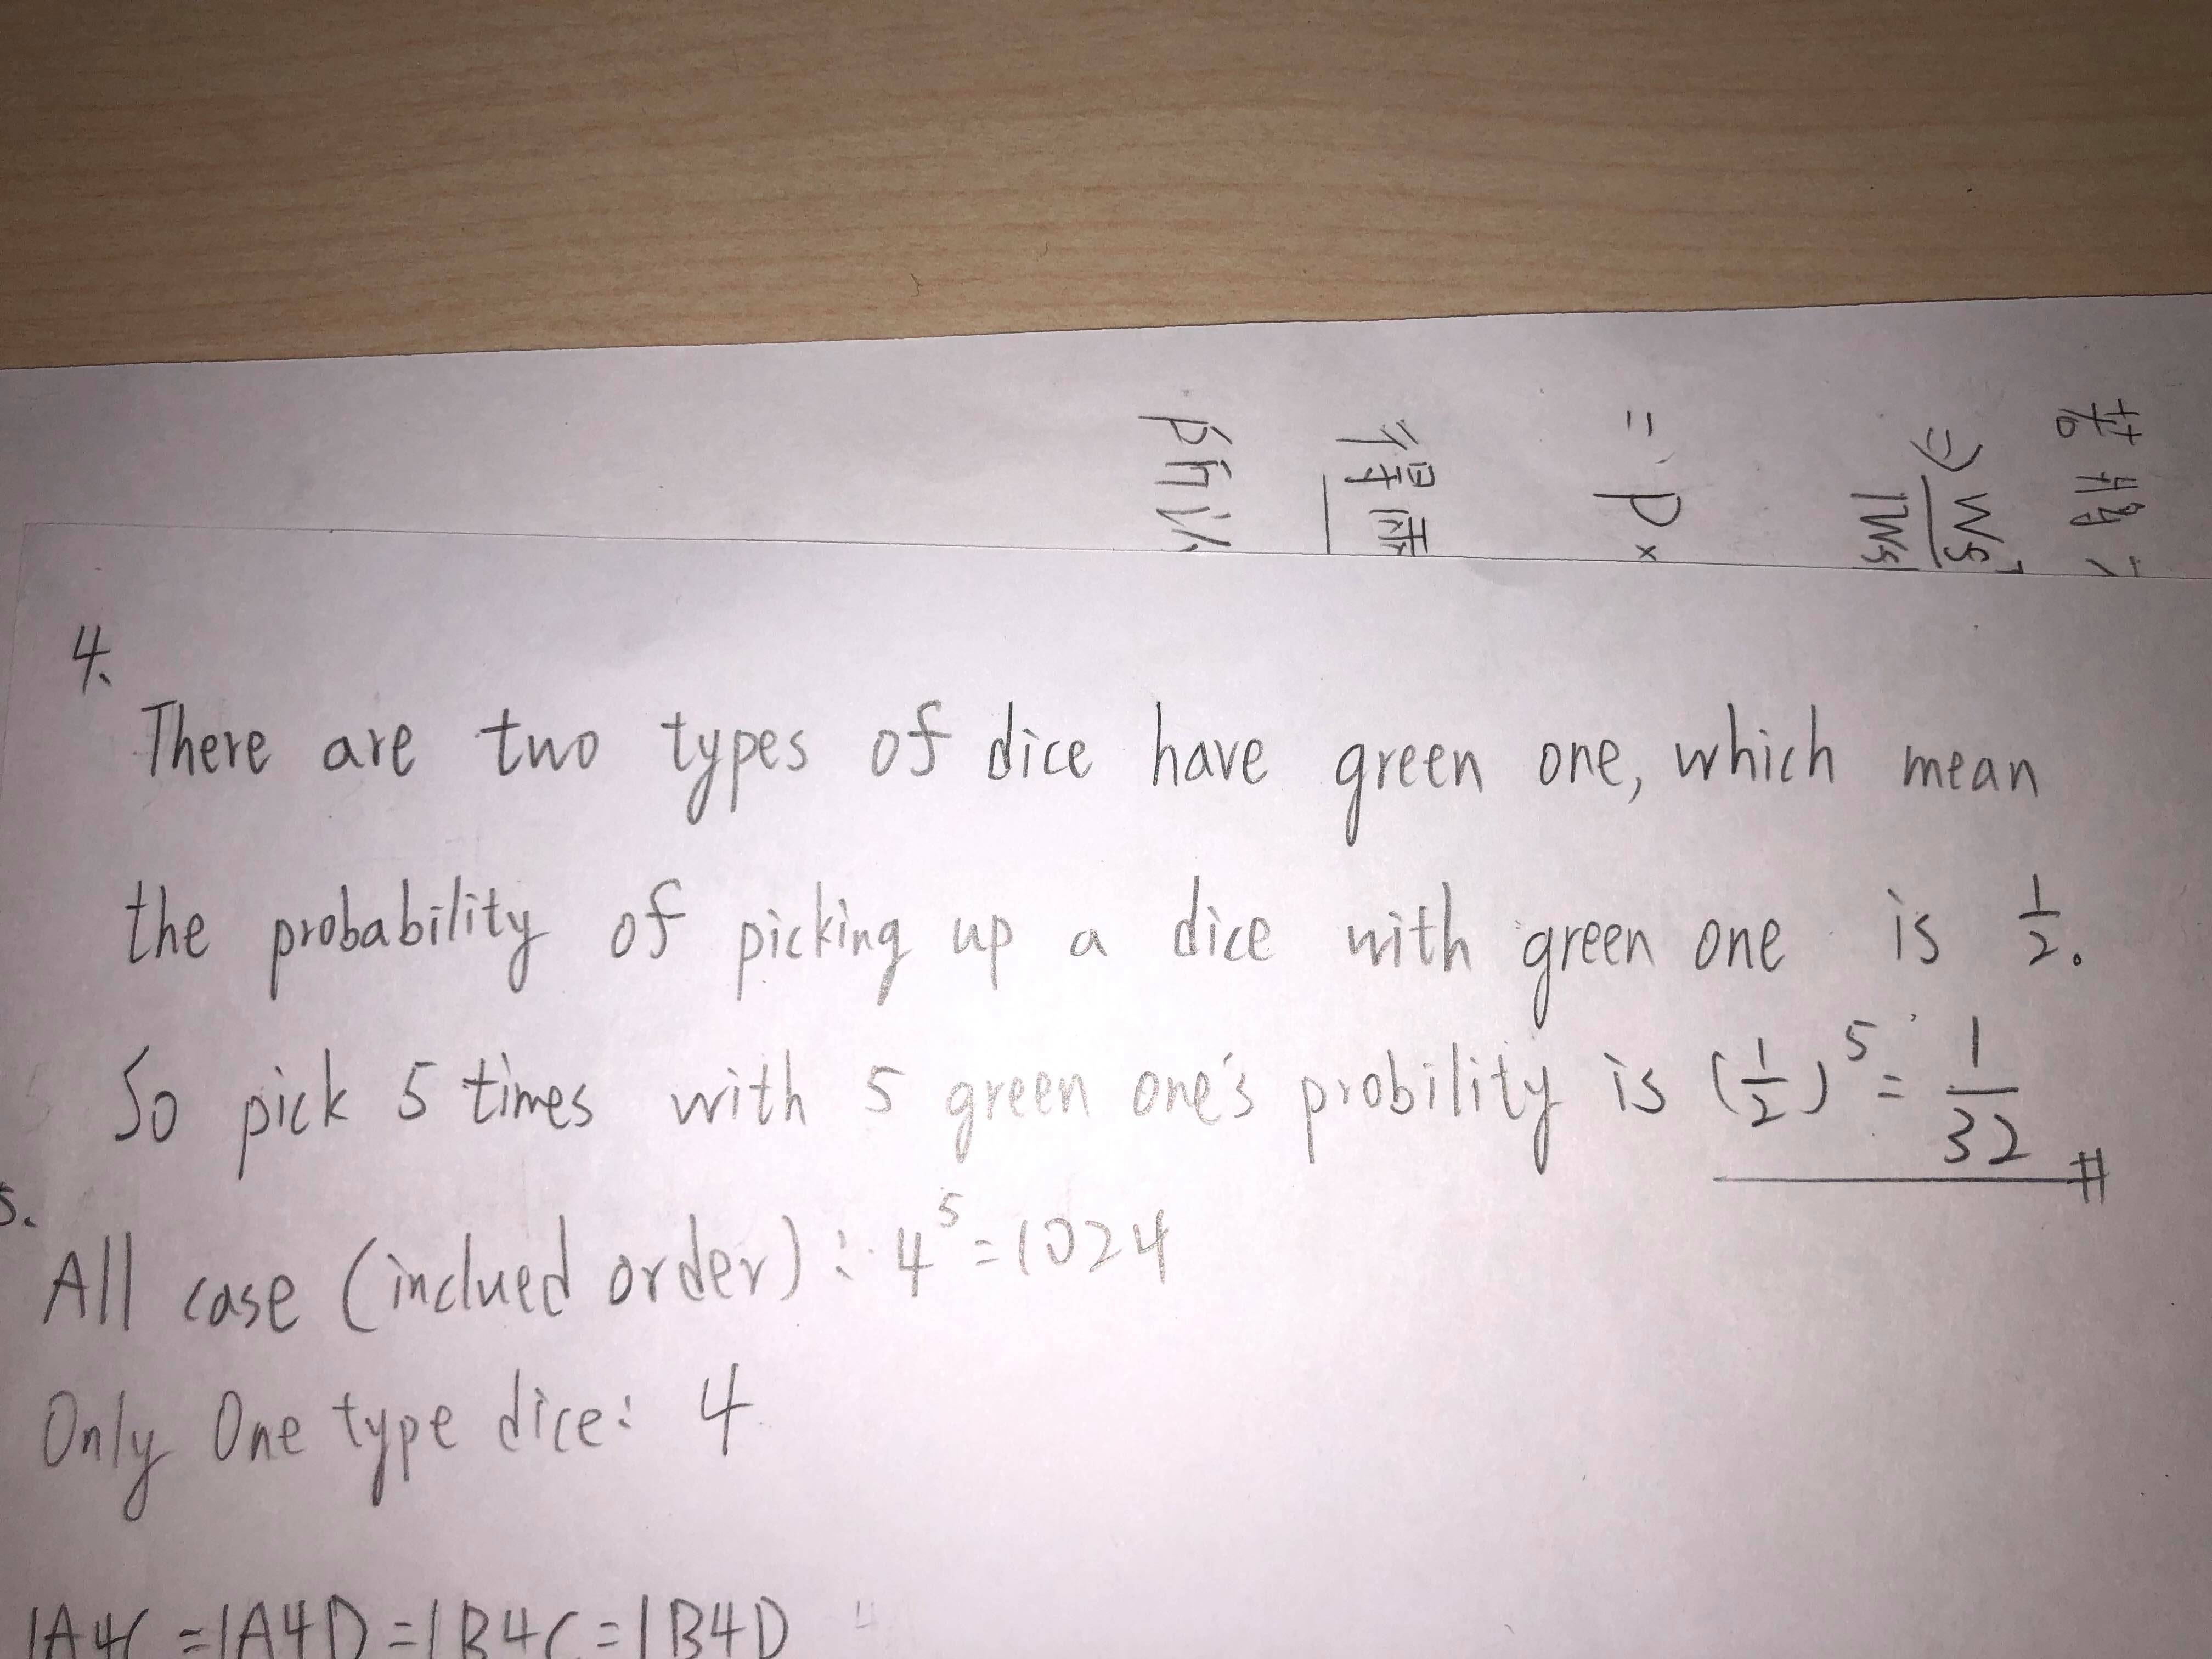 4.
There are two types of dice have green one, which mean
the probability of picking up a dice with green one is 1/2.
So pick 5 times with 5 green one's probility is (1/2)^5 = 1/32 #
5.
All case (inclued order) : 4^5 = 1024
Only One type dice: 4
1A4C = 1A4D = 1B4C = 1B4D